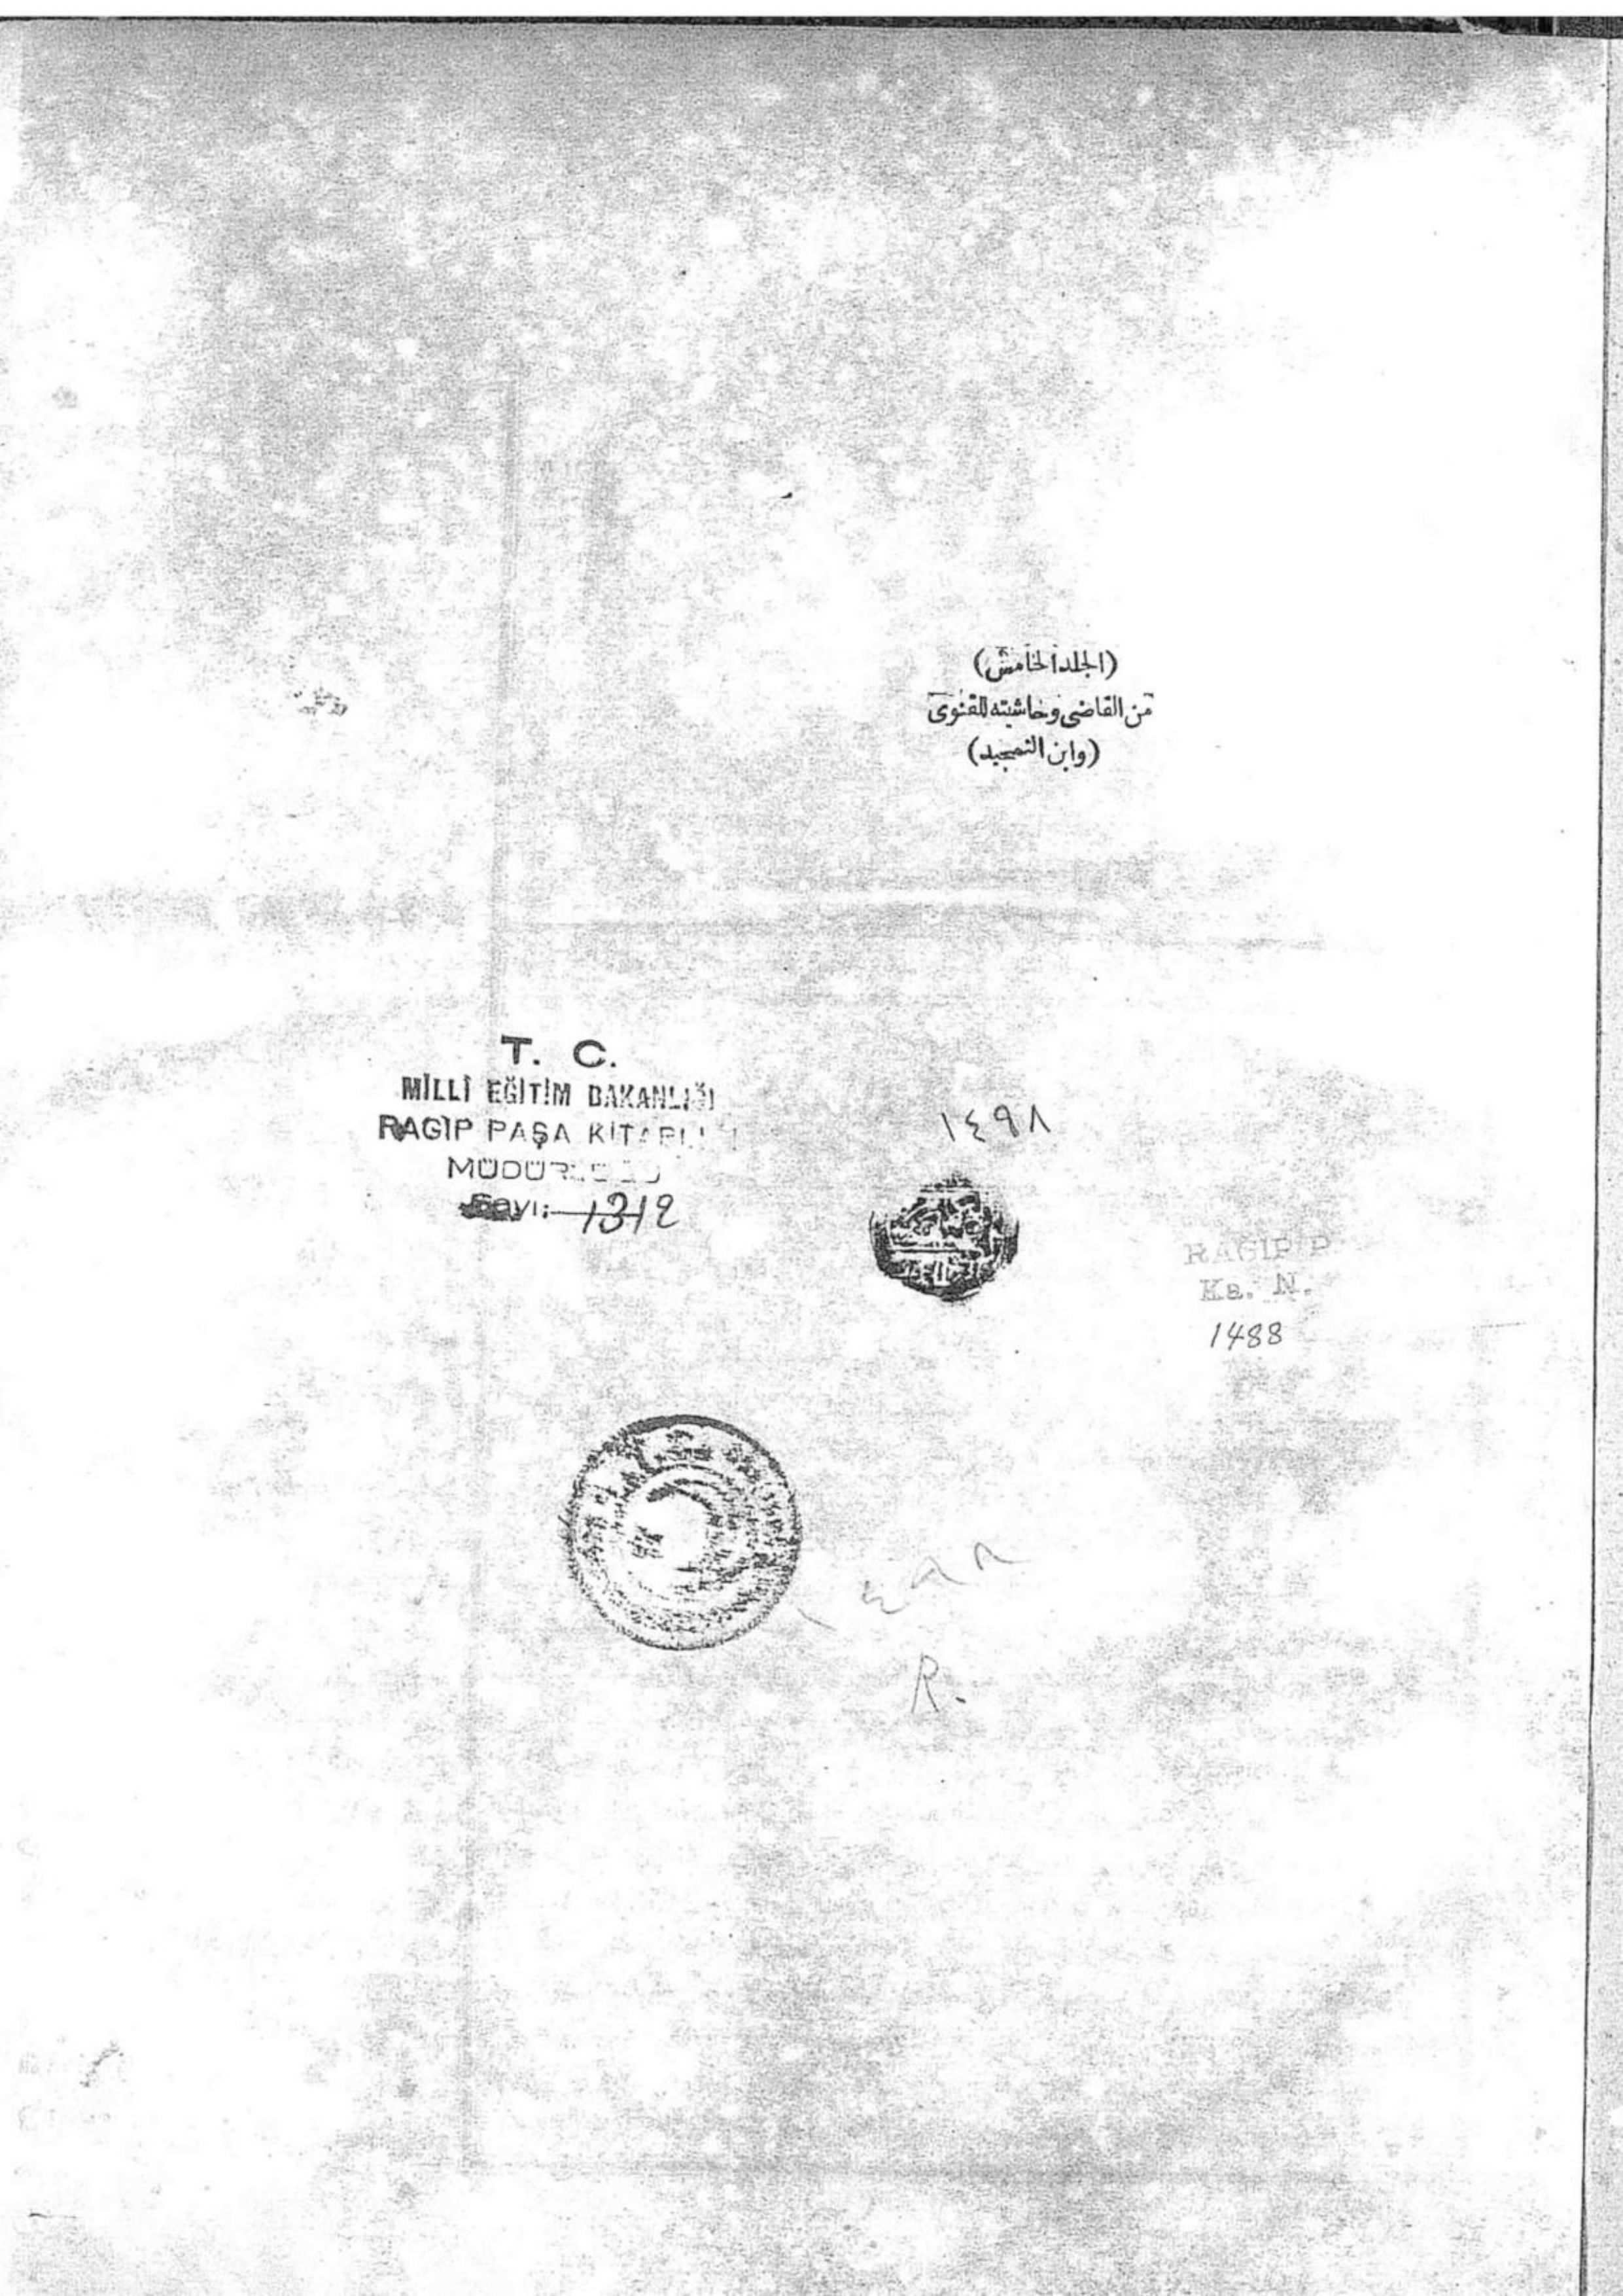 (الجلد الخامس)
من القاضى وحاشيته للقنوى
(وابن التمجيد)
T. C.
MİLLÎ EĞİTİM BAKANLIĞI
RAGIP PAŞA KİTAPLIĞI
MÜDÜRLÜĞÜ
Sayı: 1312
١٤٩٨
RAGIP P
Ka. N.
1488
١٤٩٨
R.